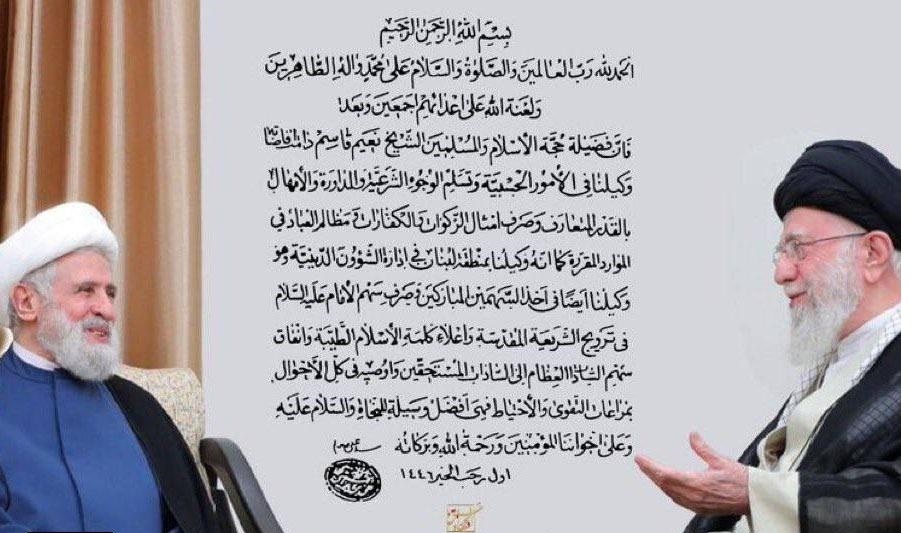 بِسْمِ اللهِ الرَّحْمنِ الرَّحيمِ
الحمدلله رَبّ العالمینَ وَالصَّلوٰةُ وَالسَّلامُ عَلیٰ مُحَمَّدٍ وَآلِهِ الطّاهِرینَ
وَلَعْنَةُ اللهِ عَلیٰ اَعْدائِهِم اَجمَعینَ وَبَعد؛
فَاِنَّ فَضیلَةَ حُجَّةِ الْاِسْلامِ وَالْمُسْلِمینَ الشَّیخ نَعیم قاسِم
وَکیلُنا فی الْاُمُورِ الْحِسْبِیَّةِ وَتَسَلُّمِ الْوُجُوهِ الشَّرْعِیَّةِ وَالْمُداوَرَةِ وَالْاِمْهالِ
بِالْقَدْرِ الْمُتَعارَفِ وَصَرْفِ اَمْثالِ الزَّکَواتِ وَالْکَفّاراتِ وَمَظالِمِ الْعِبادِ فی
الْمَوارِدِ الْمُقَرَّرَةِ کَما اَنَّهُ وَکیلُنا بِمِنْطَقَةِ لُبْنان فی اِدارَةِ الشُّؤُونِ الدّینِیَّةِ وَهُوَ
وَکیلُنا اَیضًا فی اَخْذِ السَّهْمَینِ الْمُبارَکَینِ وَصَرْفِ سَهْمِ الْاِمامِ عَلَیهِ السَّلام
فی تَرْویجِ الشَّریعَةِ الْمُقَدَّسَةِ وَاِعْلاءِ کَلِمَةِ الْاِسْلامِ الطَّیِّبَةِ وَاِنْفاقِ
سَهْمِ السّادَةِ الْعِظامِ اِلَی السّاداتِ الْمُسْتَحِقّینَ وَاُوصیهِ فی کُلِّ الْاَحْوالِ
بِمُراعاتِ التَّقْویٰ وَالْاِحْتِیاطِ فَهِیَ اَفْضَلُ وَسیلَةٍ لِلنَّجاةِ وَالسَّلامُ عَلَیهِ
وَعَلیٰ اِخْوانِنَا الْمُؤْمِنینَ وَرَحْمَةُ اللهِ وَبَرَکاتُه
اول رجب الخیر ١٤٤٦